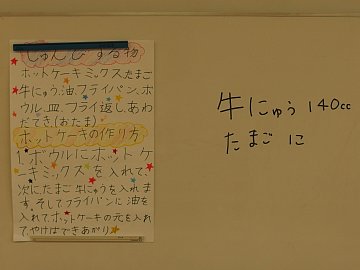 じゅんびする物
ホットケーキミックス.たまご
牛にゅう.油.フライパン.ボ
ウル.皿.フライ返し.あわ
だてき.(おたま)
ホットケーキの作り方
1.ボウルにホットケ
ーキミックスを入れて、
次にたまご牛にゅうを入れま
す。そしてフライパンに油を
入れて、ホットケーキの元を入れ
て、やけばできあがり
牛にゅう 140cc
たまご に